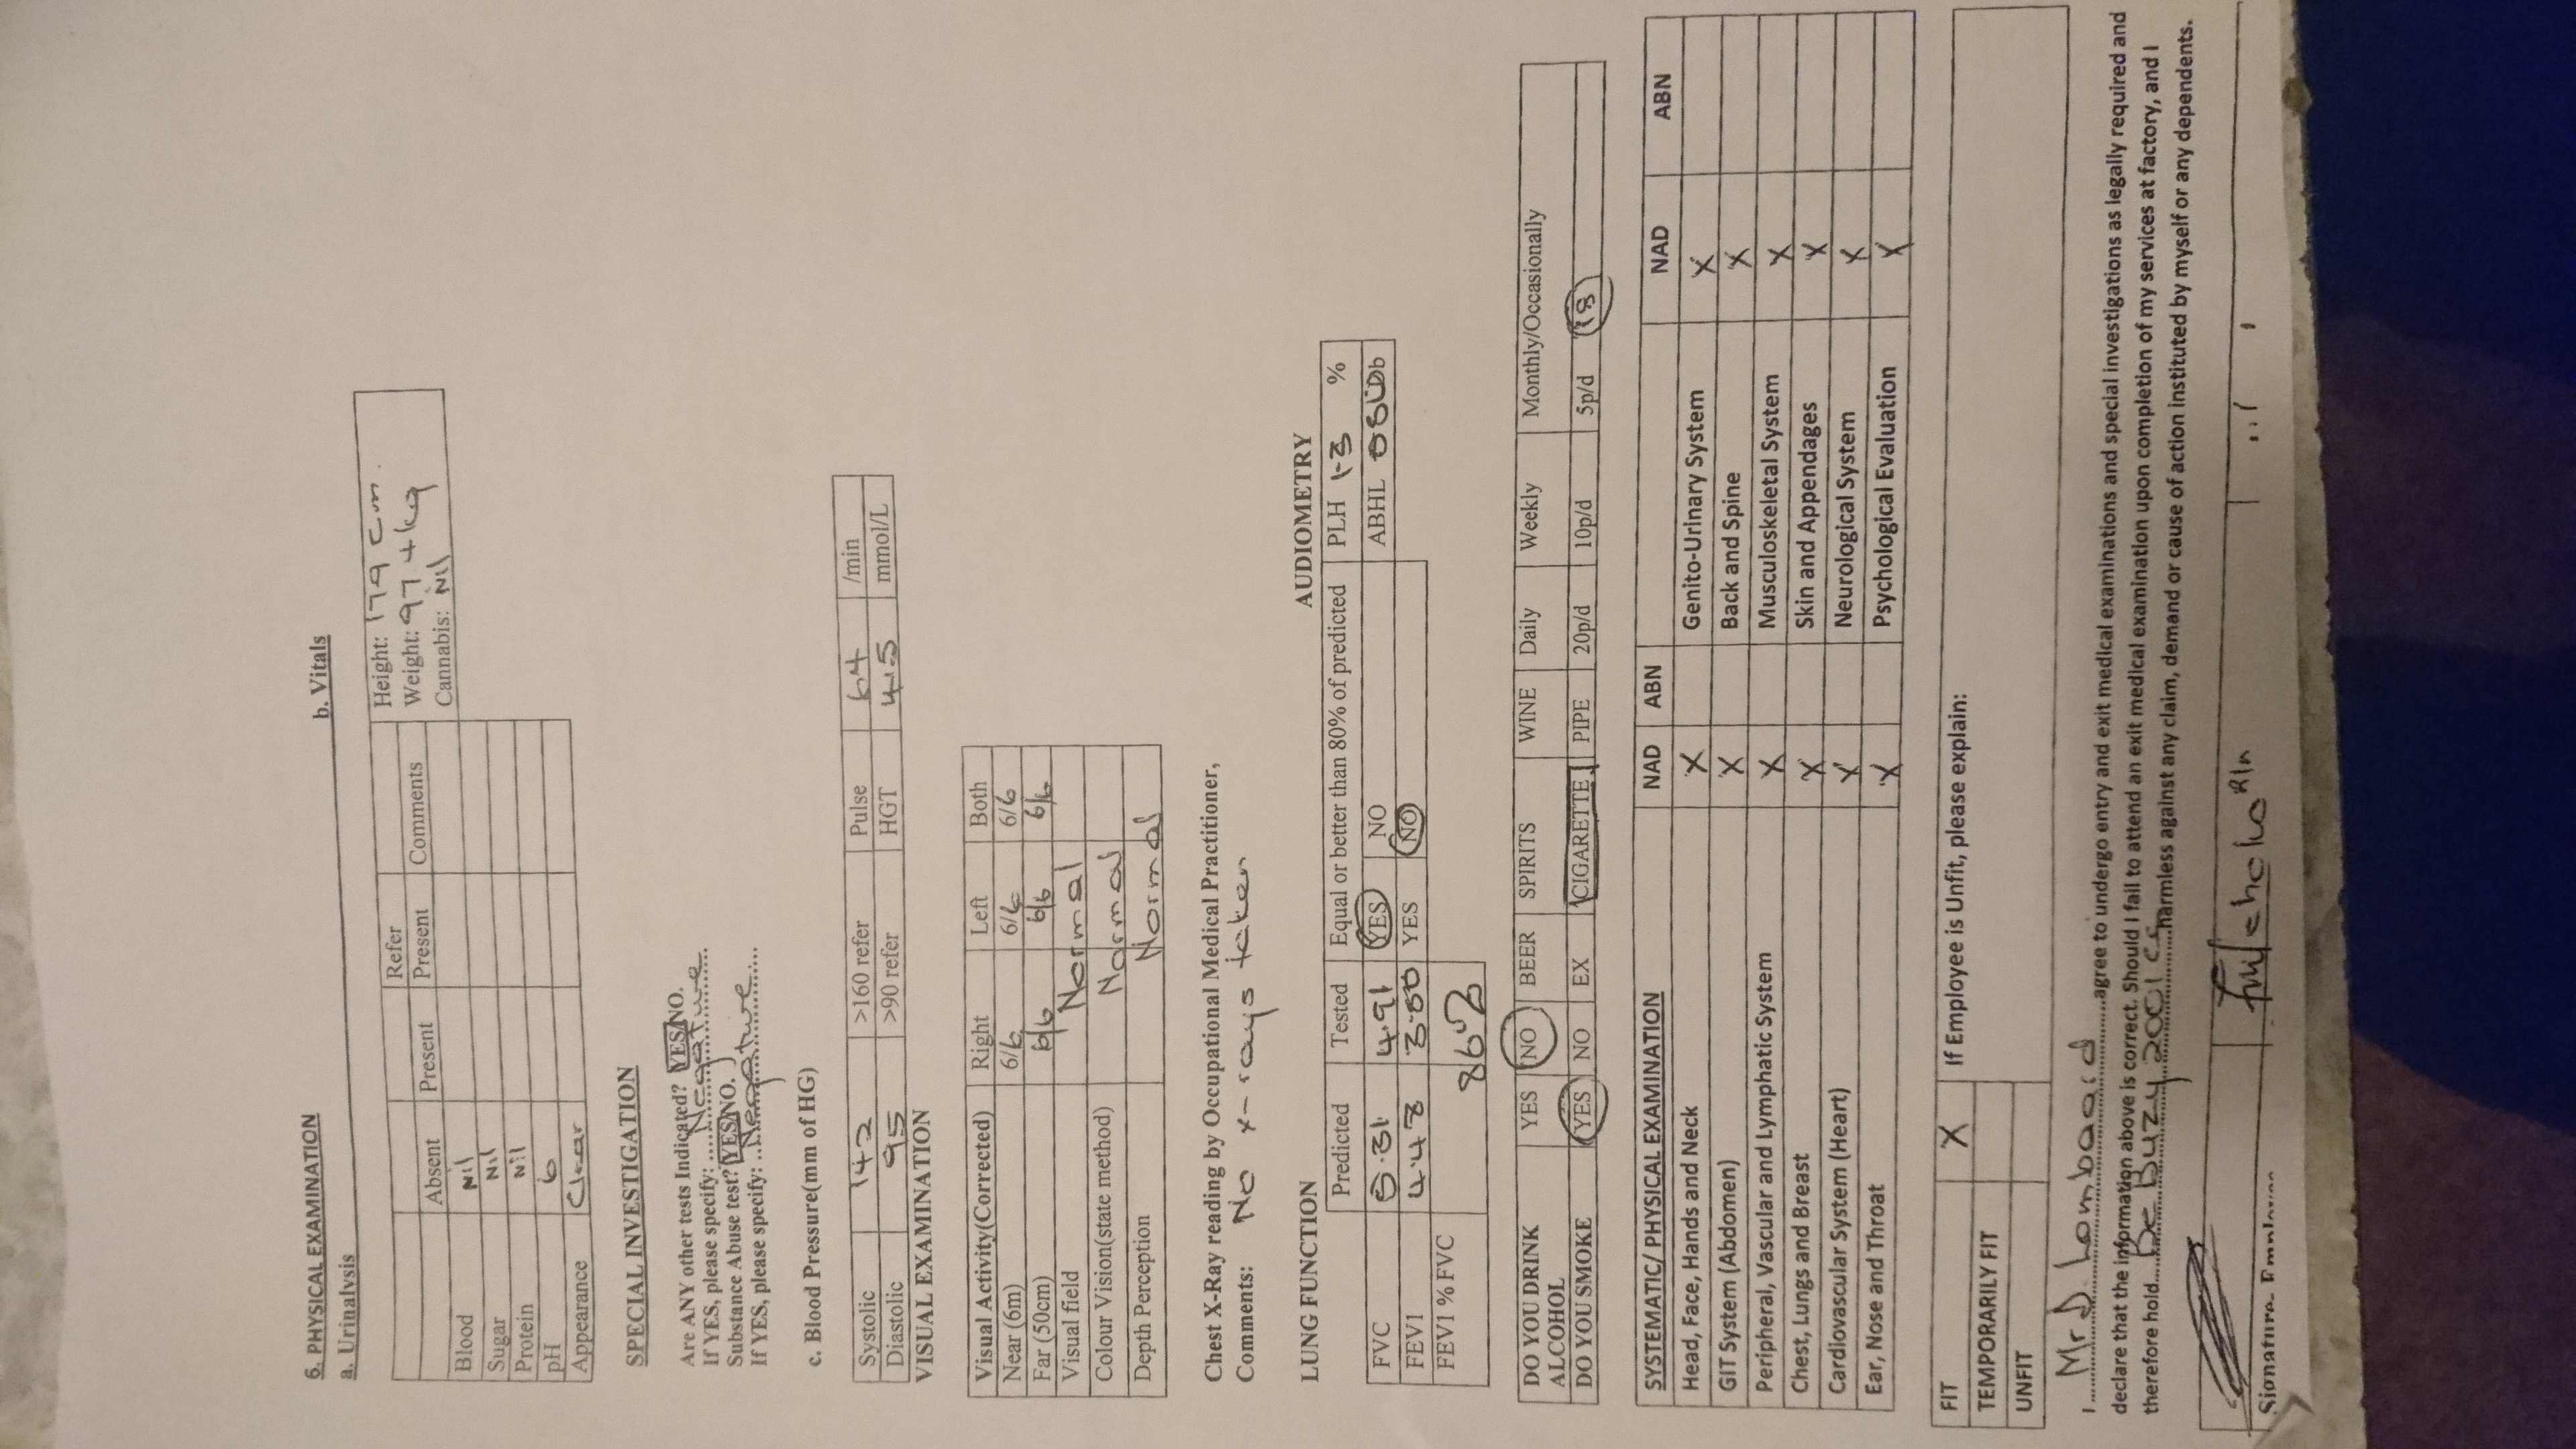 6. PHYSICAL EXAMINATION
a. Urinalysis
b. Vitals
Refer
Absent Present Present Comments
Blood Nil
Sugar Nil
Protein Nil
pH 6
Appearance Clear
Height: 179 cm.
Weight: 97 kg
Cannabis: Nil
SPECIAL INVESTIGATION
Are ANY other tests Indicated? YES/NO.
If YES, please specify: Negative
Substance Abuse test? YES/NO.
If YES, please specify: Negative
c. Blood Pressure(mm of HG)
Systolic 142 >160 refer Pulse 64 /min
Diastolic 95 >90 refer HGT 4.5 mmol/L
VISUAL EXAMINATION
Visual Activity(Corrected) Right Left Both
Near (6m) 6/6 6/6 6/6
Far (50cm) 6/6 6/6 6/6
Visual field Normal
Colour Vision(state method) Normal
Depth Perception Normal
Chest X-Ray reading by Occupational Medical Practitioner,
Comments: No x-rays taken
LUNG FUNCTION AUDIOMETRY
Predicted Tested Equal or better than 80% of predicted PLH %
FVC 5.31 4.91 YES NO ABHL
FEV1 YES NO
FEV1 % FVC
DO YOU DRINK ALCOHOL YES NO BEER SPIRITS WINE Daily Weekly Monthly/Occasionally
DO YOU SMOKE YES NO EX CIGARETTE PIPE 20p/d 10p/d 5p/d
SYSTEMATIC/ PHYSICAL EXAMINATION NAD ABN NAD ABN
Head, Face, Hands and Neck X Genito-Urinary System X
GIT System (Abdomen) X Back and Spine X
Peripheral, Vascular and Lymphatic System X Musculoskeletal System X
Chest, Lungs and Breast X Skin and Appendages X
Cardiovascular System (Heart) X Neurological System X
Ear, Nose and Throat X Psychological Evaluation X
FIT X If Employee is Unfit, please explain:
TEMPORARILY FIT
UNFIT
I Mr D. Lombaard agree to undergo entry and exit medical examinations and special investigations as legally required and
declare that the information above is correct. Should I fail to attend an exit medical examination upon completion of my services at factory, and I
therefore hold De Buzy 2001 cc harmless against any claim, demand or cause of action instituted by myself or any dependents.
Signature- Employee